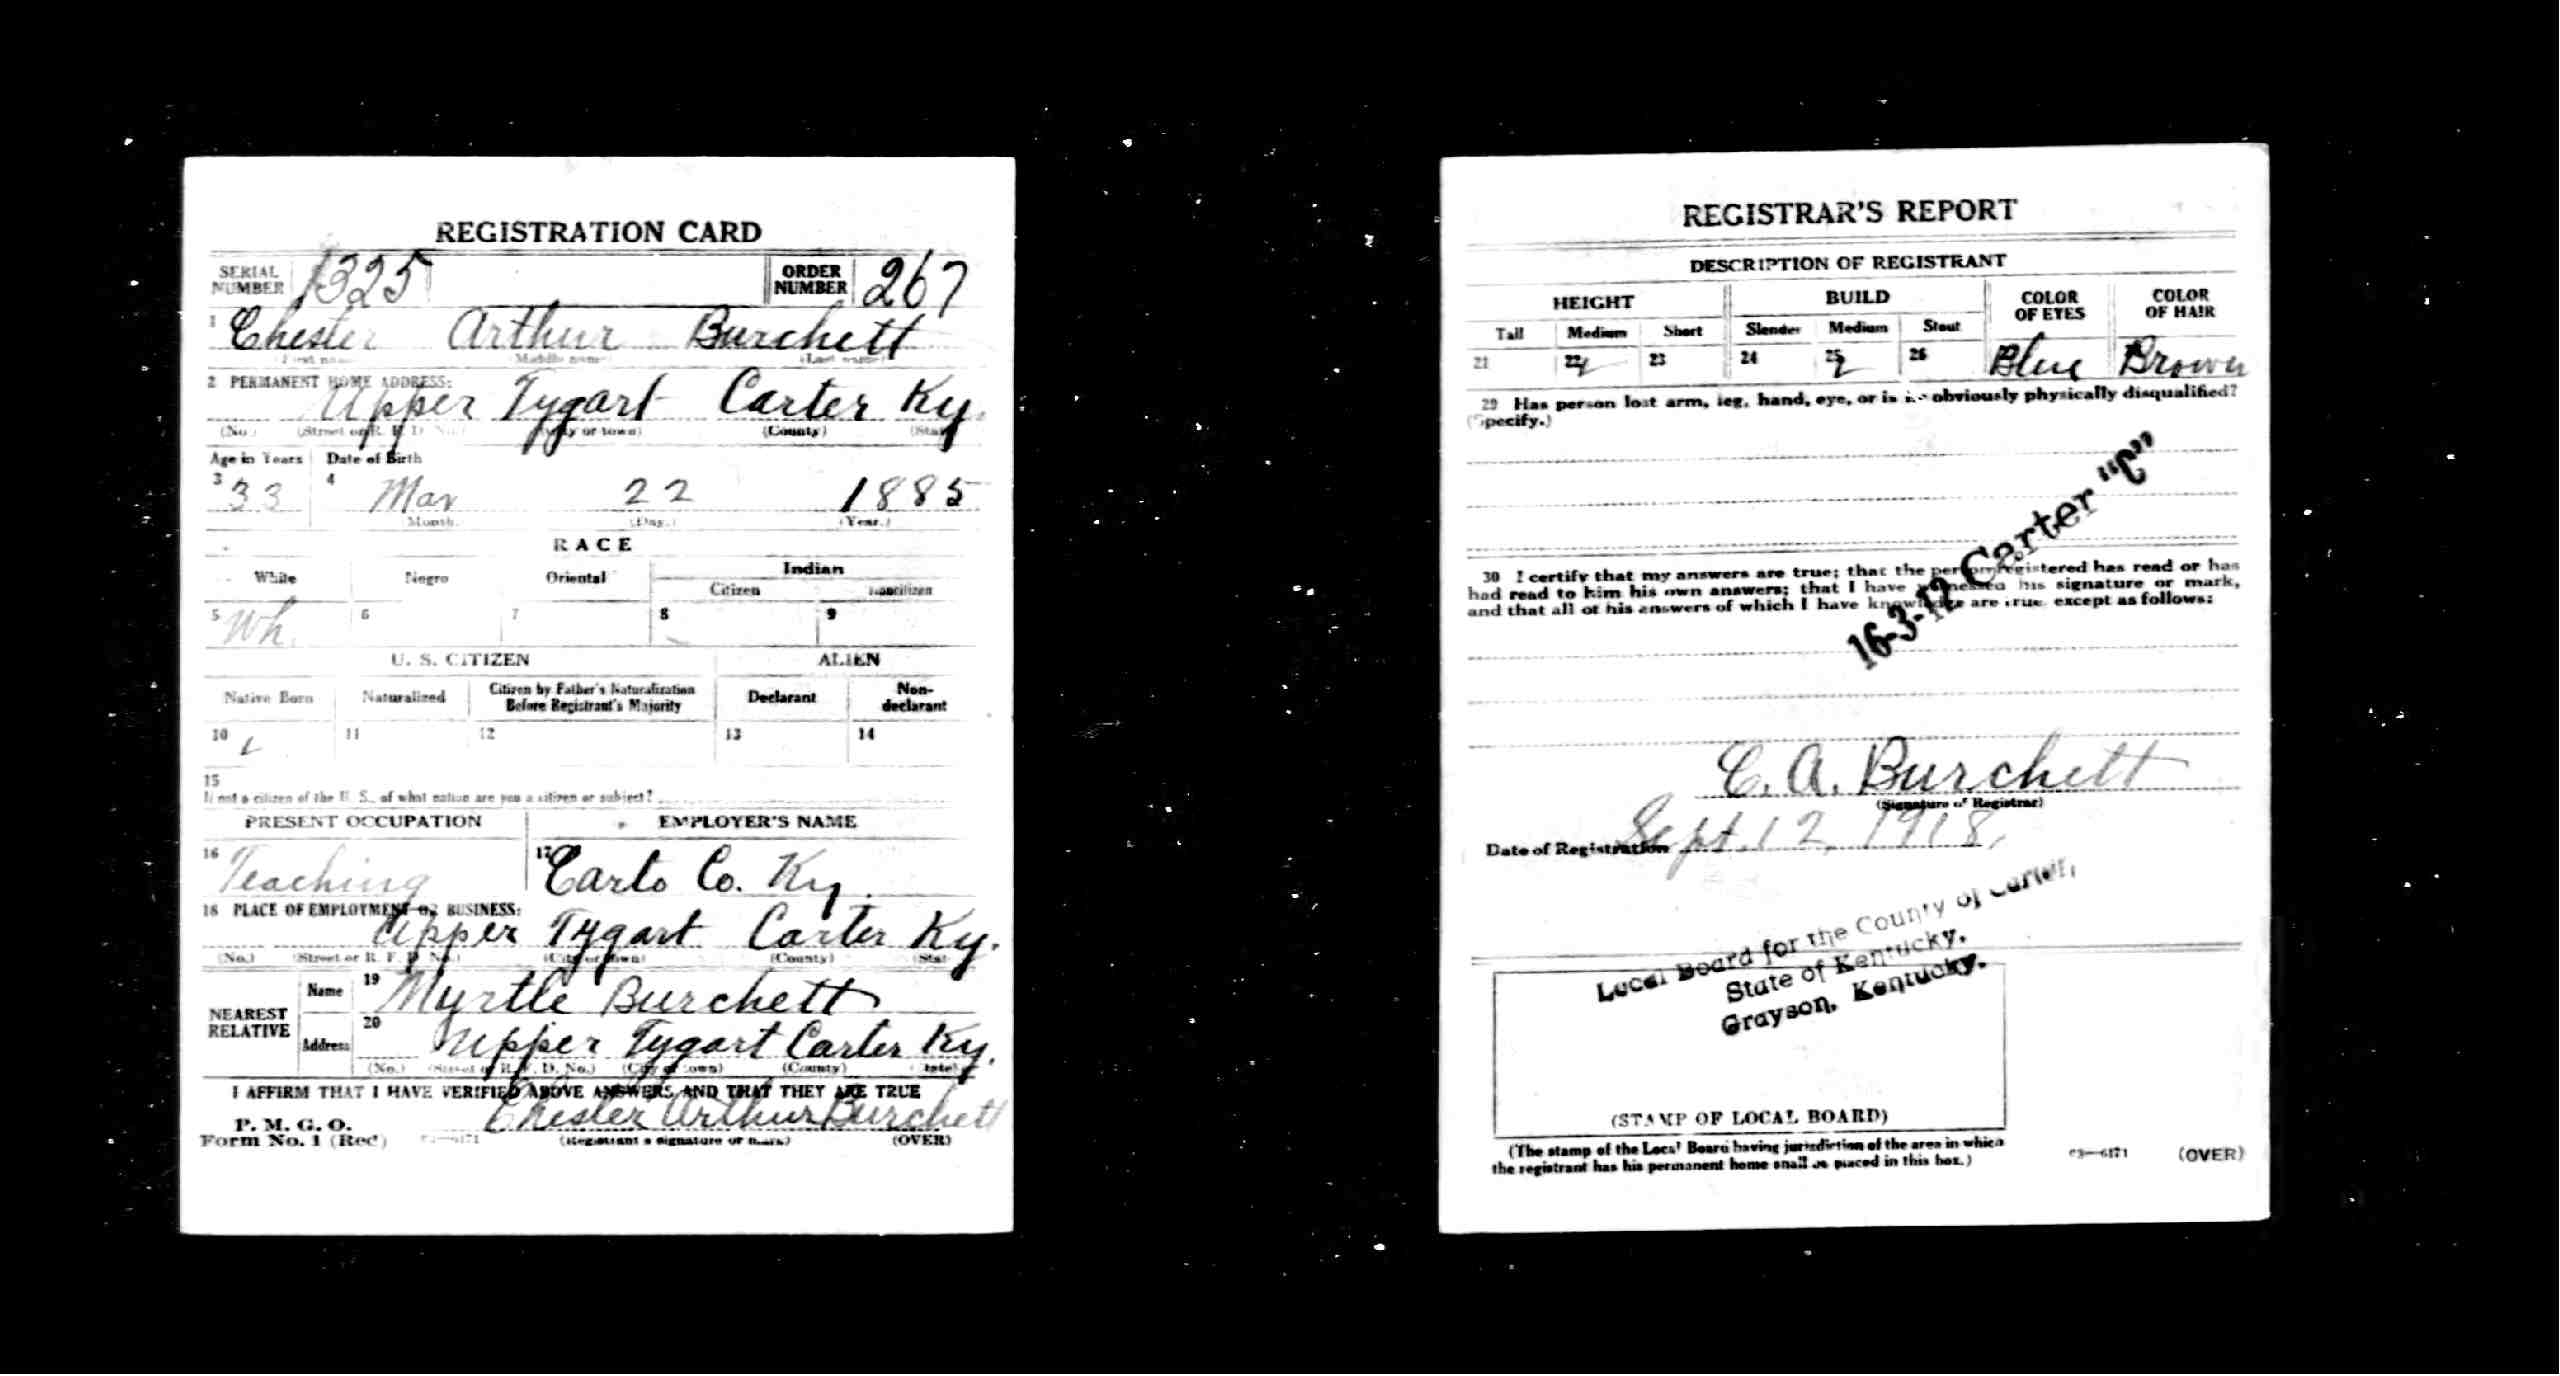 REGISTRATION CARD
SERIAL NUMBER 1325 ORDER NUMBER 267
1 Chester Arthur Burchett
(First name) (Middle name) (Last name)
2 PERMANENT HOME ADDRESS:
Upper Tygart Carter Ky.
(No.) (Street or R. F. D. No.) (City or town) (County) (State)
Age in Years Date of Birth
3 33 4 Mar 22 1885
Month. (Day.) (Year.)
RACE
White Negro Oriental Indian
Citizen Noncitizen
5 Wh. 6 7 8 9
U. S. CITIZEN ALIEN
Native Born Naturalized Citizen by Father's Naturalization Before Registrant's Majority Declarant Non-declarant
10 11 12 13 14
15
If not a citizen of the U. S., of what nation are you a citizen or subject?
PRESENT OCCUPATION EMPLOYER'S NAME
16 Teaching 17 Carto Co. Ky.
18 PLACE OF EMPLOYMENT OR BUSINESS:
Upper Tygart Carter Ky.
(No.) (Street or R. F. D. No.) (City or town) (County) (State)
NEAREST RELATIVE Name 19 Myrtle Burchett
Address 20 Upper Tygart Carter Ky.
(No.) (Street or R. F. D. No.) (City or town) (County) (State)
I AFFIRM THAT I HAVE VERIFIED ABOVE ANSWERS AND THAT THEY ARE TRUE
P. M. G. O.
Form No. 1 (Red) 03—6171 Chester Arthur Burchett
(Registrant's signature or mark) (OVER)
REGISTRAR'S REPORT
DESCRIPTION OF REGISTRANT
HEIGHT BUILD COLOR OF EYES COLOR OF HAIR
Tall Medium Short Slender Medium Stout
21 22 23 24 25 26 Blue Brown
29 Has person lost arm, leg, hand, eye, or is he obviously physically disqualified?
(Specify.)
16-3-12 Carter "C"
30 I certify that my answers are true; that the person registered has read or has
had read to him his own answers; that I have witnessed his signature or mark,
and that all of his answers of which I have knowledge are true, except as follows:
C. A. Burchett
(Signature of Registrar)
Date of Registration Sept. 12, 1918,
Local Board for the County of Carter,
State of Kentucky,
Grayson, Kentucky.
(STAMP OF LOCAL BOARD)
(The stamp of the Local Board having jurisdiction of the area in which
the registrant has his permanent home shall be placed in this box.)
03—6171 (OVER)